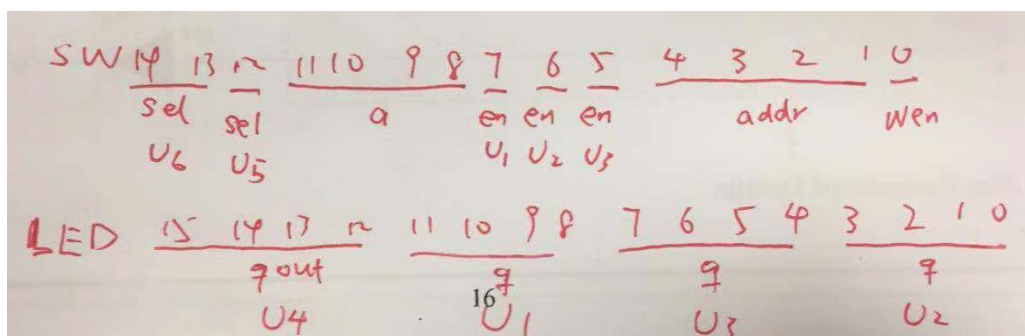 SW 14 13 12 11 10 9 8 7 6 5 4 3 2 1 0
sel sel a en en en addr wen
U6 U5 U1 U2 U3
LED 15 14 13 12 11 10 9 8 7 6 5 4 3 2 1 0
qout q q q
16
U4 U1 U3 U2